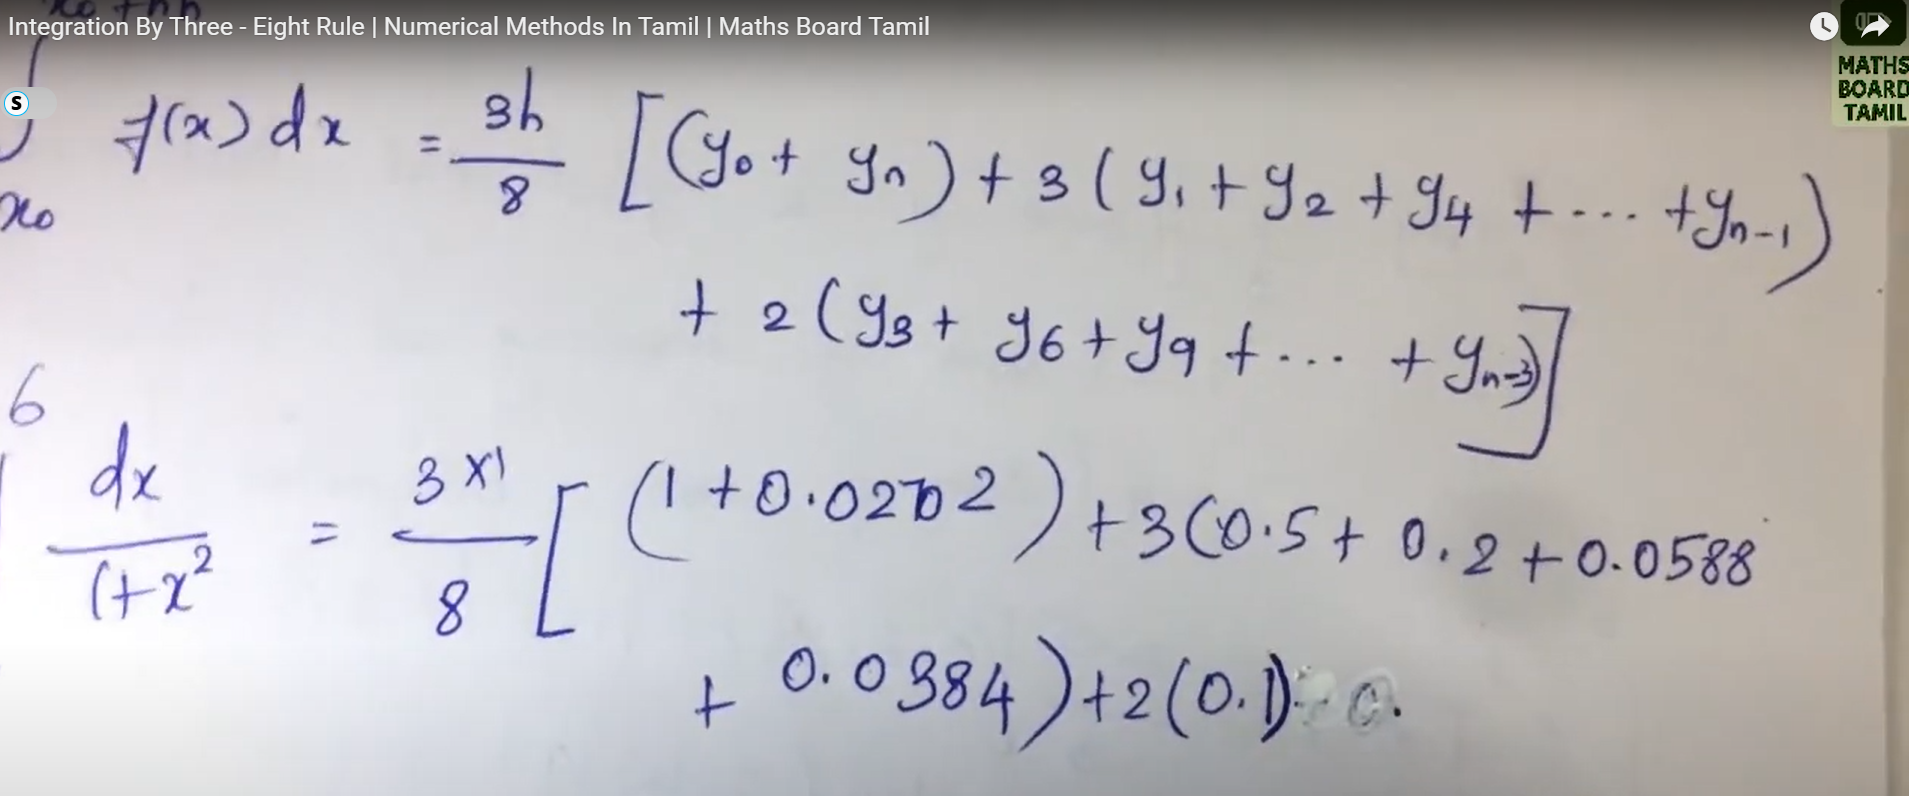 x₀ + nh
Integration By Three - Eight Rule | Numerical Methods In Tamil | Maths Board Tamil
MATHS
BOARD
TAMIL
S
∫ f(x) dx = 3h/8 [(y₀ + yₙ) + 3 (y₁ + y₂ + y₄ + ... + yₙ₋₁)
x₀
+ 2 (y₃ + y₆ + y₉ + ... + yₙ₋₃)]
6
∫ dx/(1+x²) = 3×1/8 [(1 + 0.02702) + 3(0.5 + 0.2 + 0.0588
+ 0.0384) + 2(0.1)